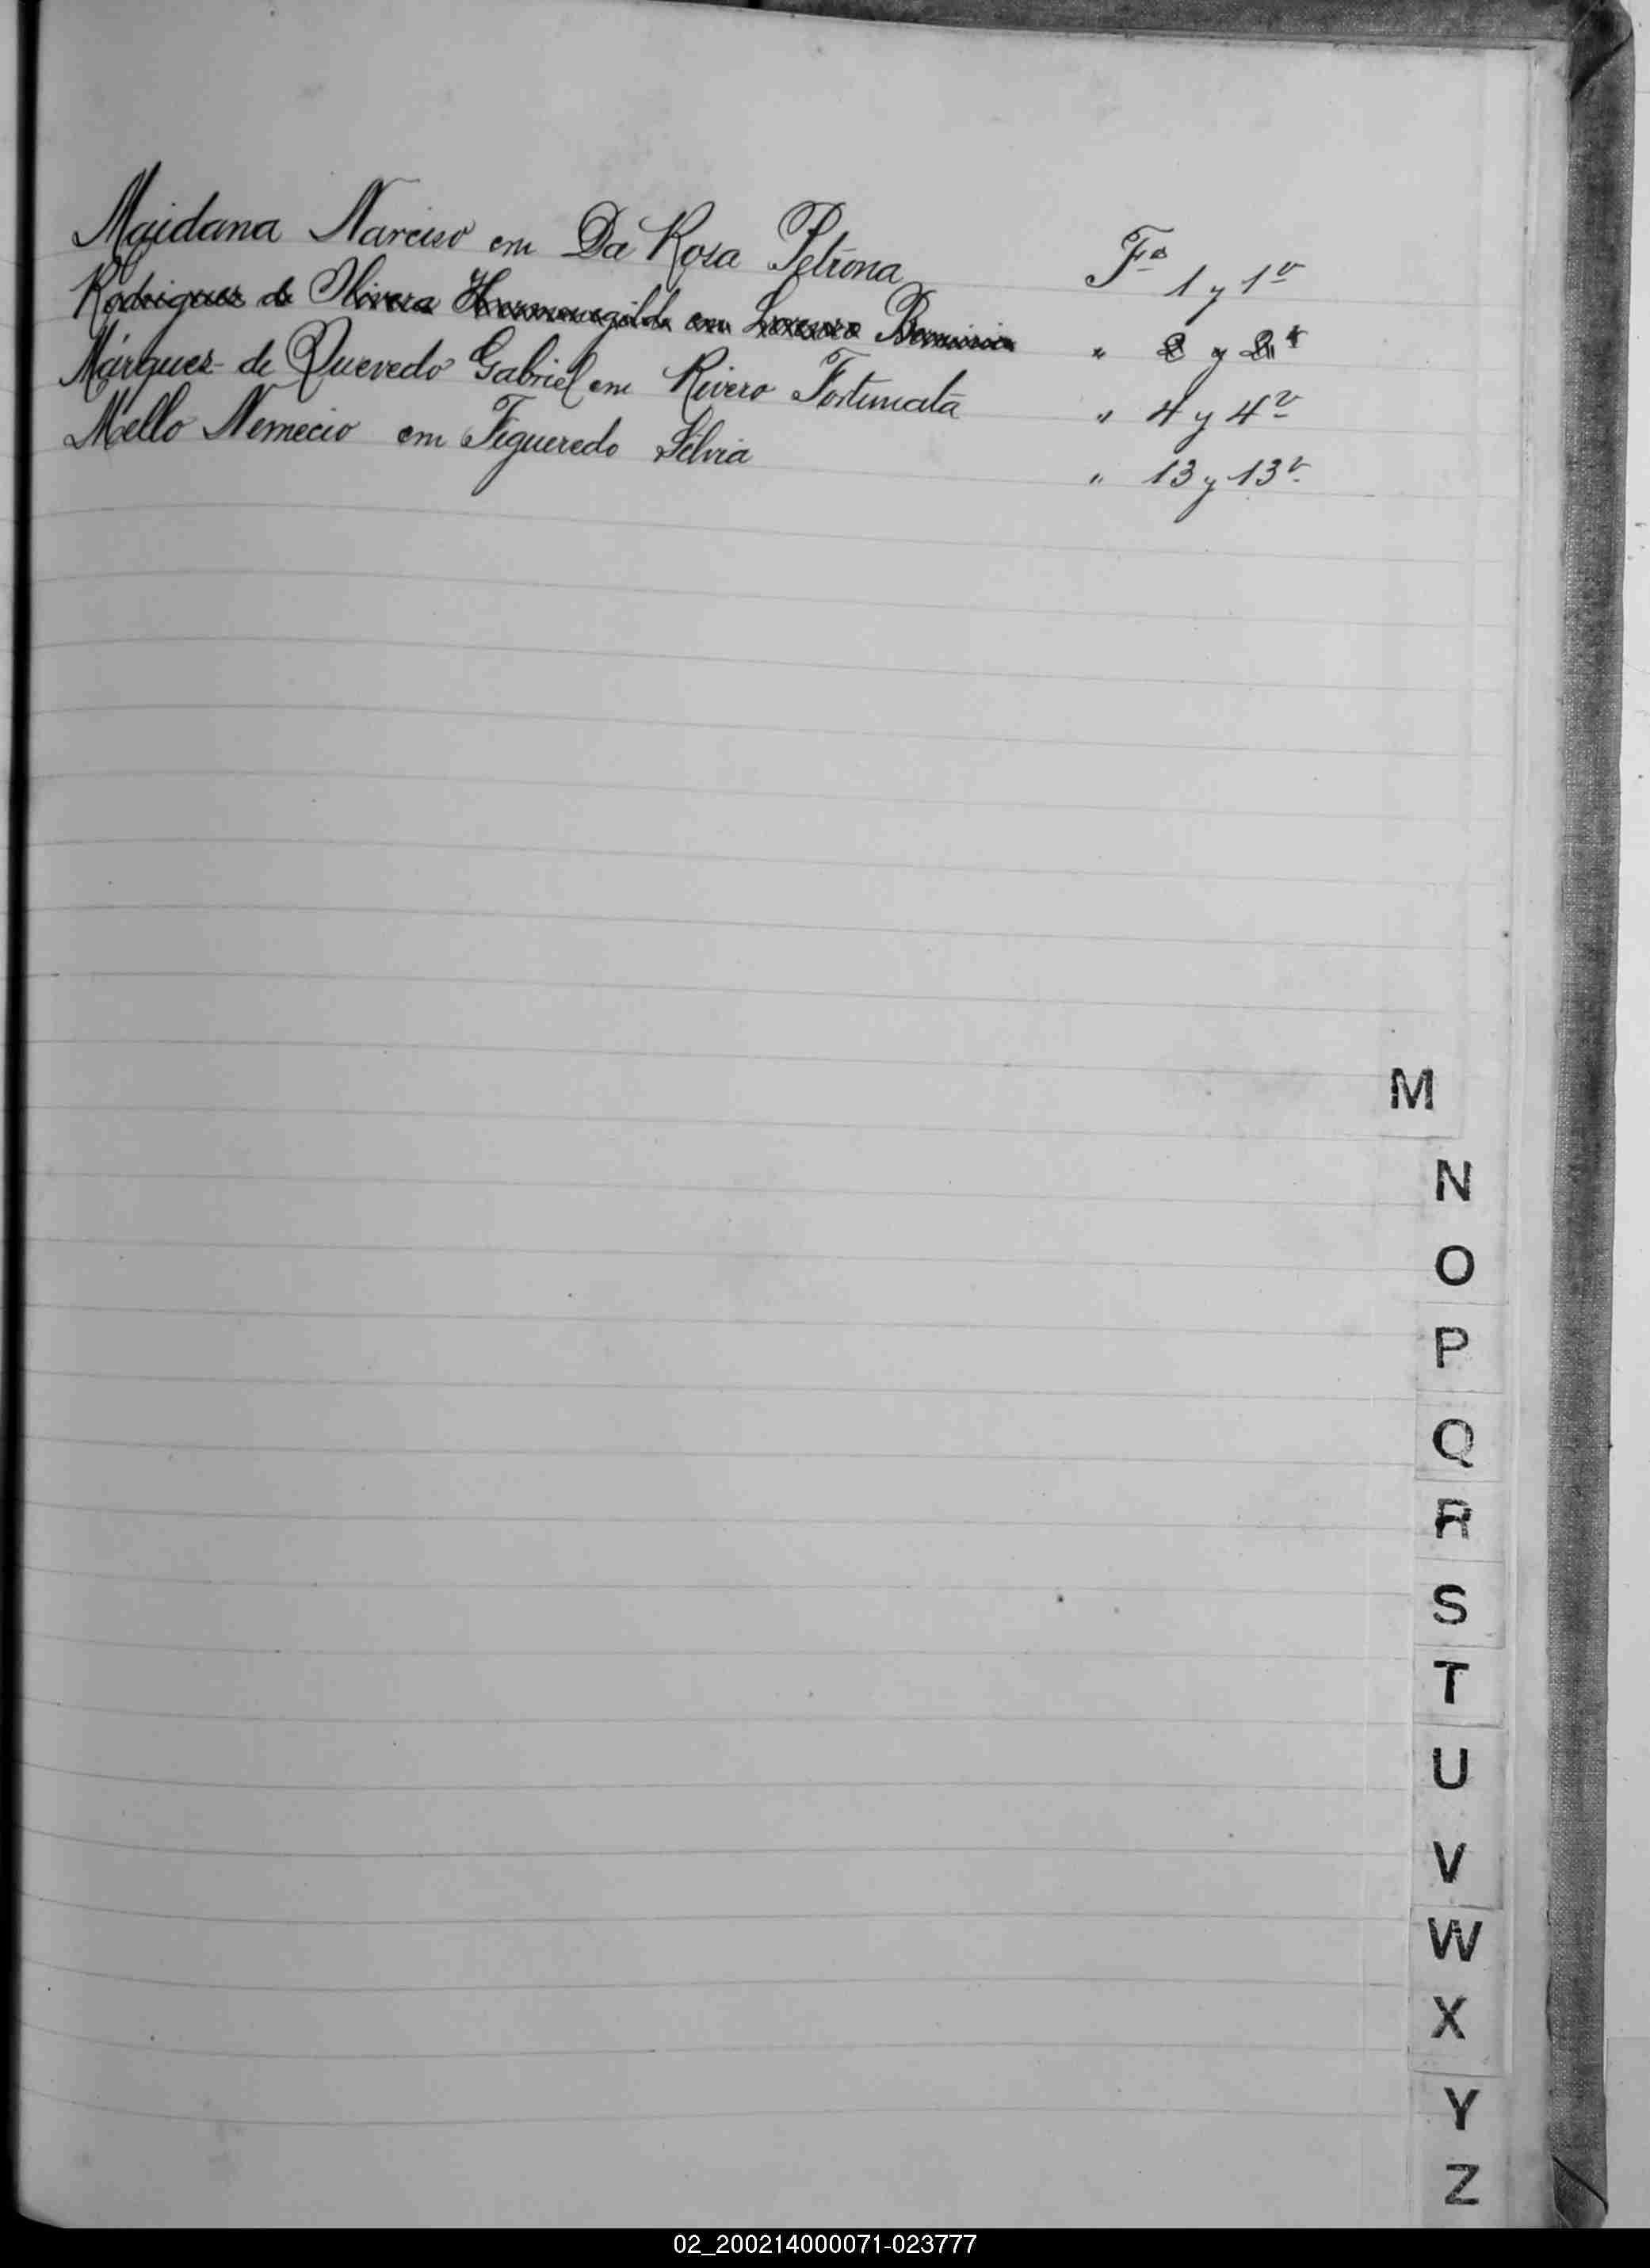 Maidana Narciso con Da Rosa Petrona Fs 1 y 1v
Rodriguez de Olivera Hermenegildo con " 2 y 2v
Márquez de Quevedo Gabriel con Rivero Fortunata " 4 y 4v
Mello Nemecio con Figueredo Silvia " 13 y 13v
M
N
O
P
Q
R
S
T
U
V
W
X
Y
Z
02_200214000071-023777